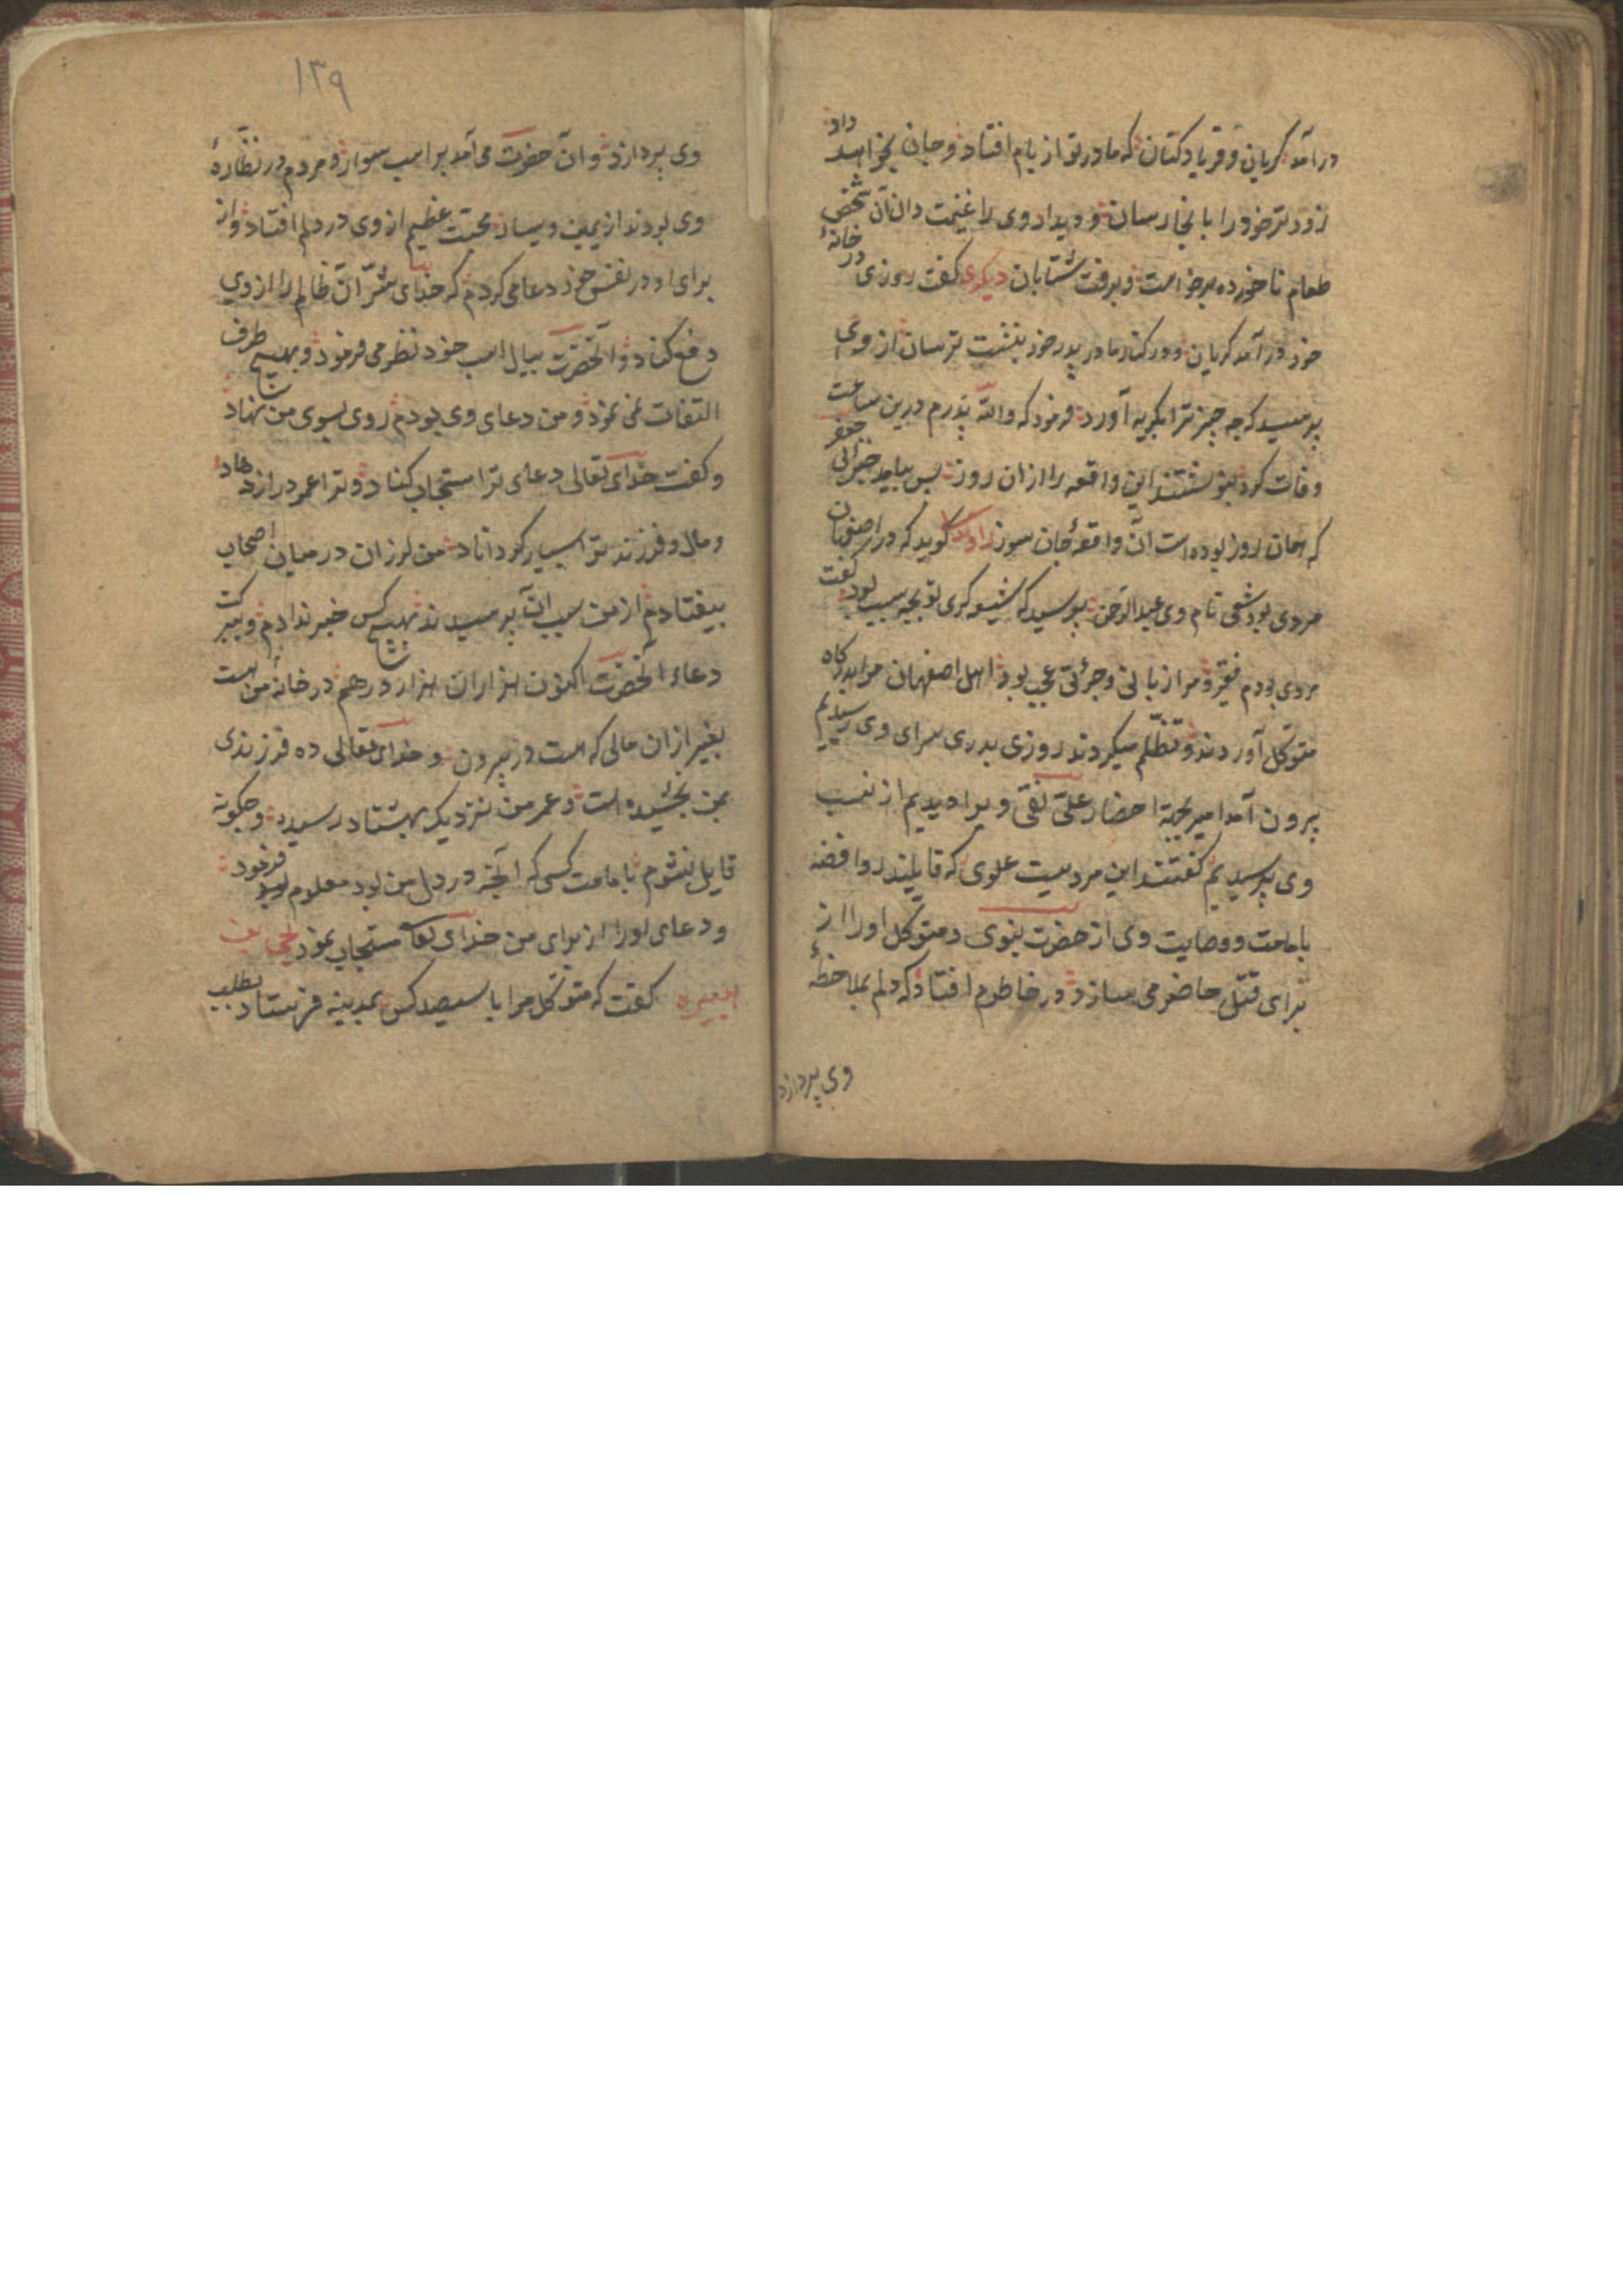 درآمد گریان و فریاد کنان که مادر تو از بام افتاد و جان بخواهد داد
زودتر خود را بانجا رسان و دیدار وی را غنیمت دان آن شخص
طعام ناخورده برخواست و برفت شتابان دیگری گفت روزی در خانهٔ
خود درآمد گریان و در کنار مادر پدر خود بنشست ترسان از وی
پرسید که چه چیز ترا بگریه آورد فرمود که والله پدرم درین ساعت
وفات کرد بنوشتند این واقعه را ازان روز پس بیامد خبر
که همان روز بوده است آن واقعهٔ جان سوز گوید که در اصفهان
مردی بود شیعی نام وی عبدالرحمن پرسید که شیعه گری تو بچه سبب بود گفت
مردی بودم فقیر و مرا زبانی و جرئتی عجب بود اهل اصفهان مرا بدرگاه
متوکل آوردند و تظلم میکردند روزی بدر سرای وی رسیدیم
بیرون آمد امیر بجهة احضار علی نقی و برا دیدیم از نسب
وی پرسیدیم گفتند این مردیست علوی که قایلند روافضه
بامامت و وصایت وی از حضرت نبوی و متوکل او را از
برای قتل حاضر می سازد و در خاطرم افتاد که دلم بملاحظهٔ
وی پردازد
١٣٩
وی پردازد و آن حضرت می آمد بر اسب سوار و مردم در نظارهٔ
وی بودند از یمین و یسار محبت عظیم از وی در دلم افتاد و از
برای او در نفس خود دعا می کردم که خدای شر آن ظالم را از وی
دفع کناد و آنحضرت بیال اسب خود نظر می فرمود و بهیچ طرف
التفات نمی نمود و من دعای وی بودم روی بسوی من نهاد
و گفت خدای تعالی دعای ترا مستجاب کناد و ترا عمر دراز دهاد
و مال و فرزند ترا بسیار گرداناد من لرزان در میان اصحاب
بیفتادم از من سبب آن پرسیدند بهیچ کس خبر ندادم و ببرکت
دعاء آنحضرت اکنون هزاران هزار درهم در خانهٔ من هست
بغیر ازان مالی که هست در بیرون و خدای تعالی ده فرزندی
بمن بخشیده است و عمر من نزدیک بهشتاد رسیده و چگونه
قایل نشوم بامامت کسی که آنچه در دل من بود معلوم فرمود
و دعای او را از برای من خدای تعا مستجاب نمود
گفت که متوکل مرا با سیصد کس بمدینه فرستاد بطلب